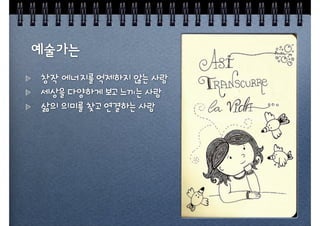 예술가는
창작 에너지를 억제하지 않는 사람
세상을 다양하게 보고 느끼는 사람
삶의 의미를 찾고 연결하는 사람
Así
Transcurre
la Vida